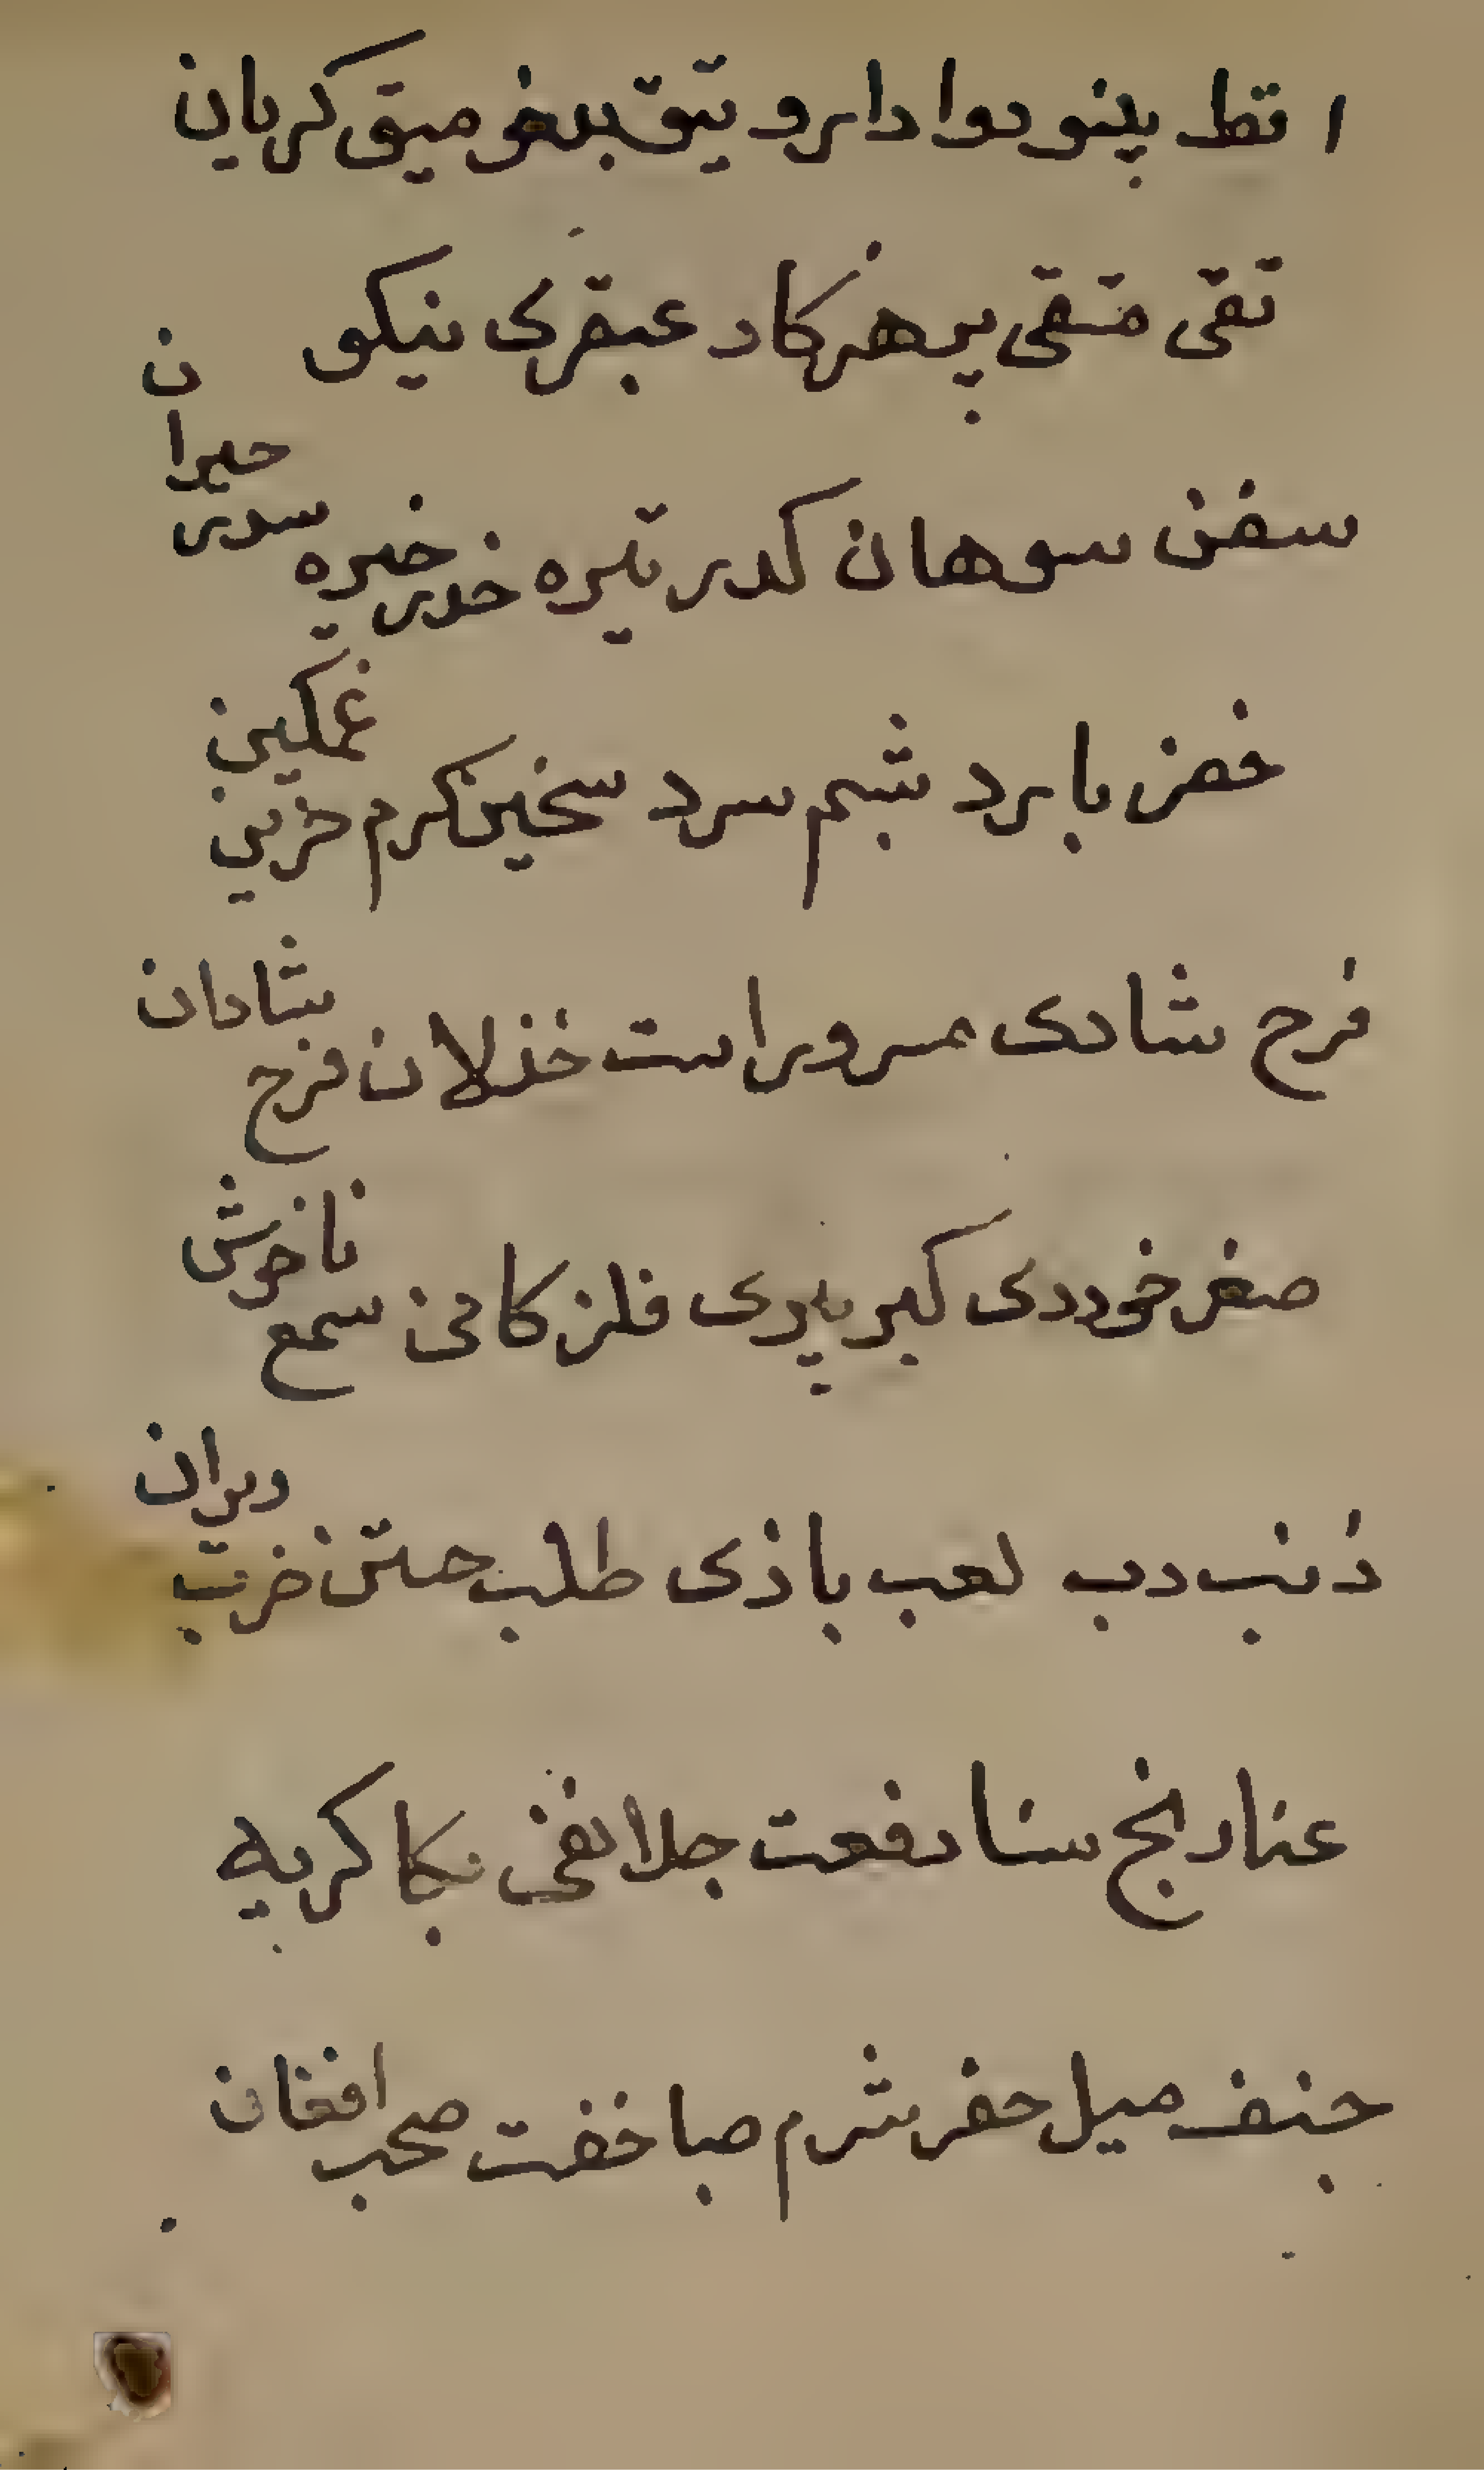 اقط پینو دوا دارو تیق بدخو میق کریان
تقی متقی پرهیزکار عبقری نیکو
سفن سوهان کدر تیره خدر خیره سدر حیران
خصر بارد شبم سرد سخین کرم حزین غمکین
فرح شادی مسرور است خذلان فرح شادان
صغر خوردی کبر پیری فلز کانی سمع ناخوش
ذنب دب لعب بازی طلب جستن خرب ویران
عنا رنج سنا رفعت جلا نفی بکا کریه
جنف میل خفر شرم صبا خفت صخب افغان